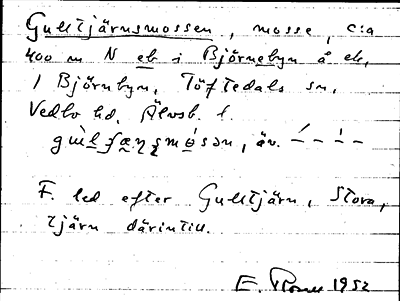 Gulltjärnsmossen, mosse, c:a
400 m N eb i Björnebyn å ek,
1 Björnbyn, Töftedals sn,
Vedbo hd, Älvsb. l.
äv.
F. led efter Gulltjärn, Stora,
tjärn därintill.
E. 1952